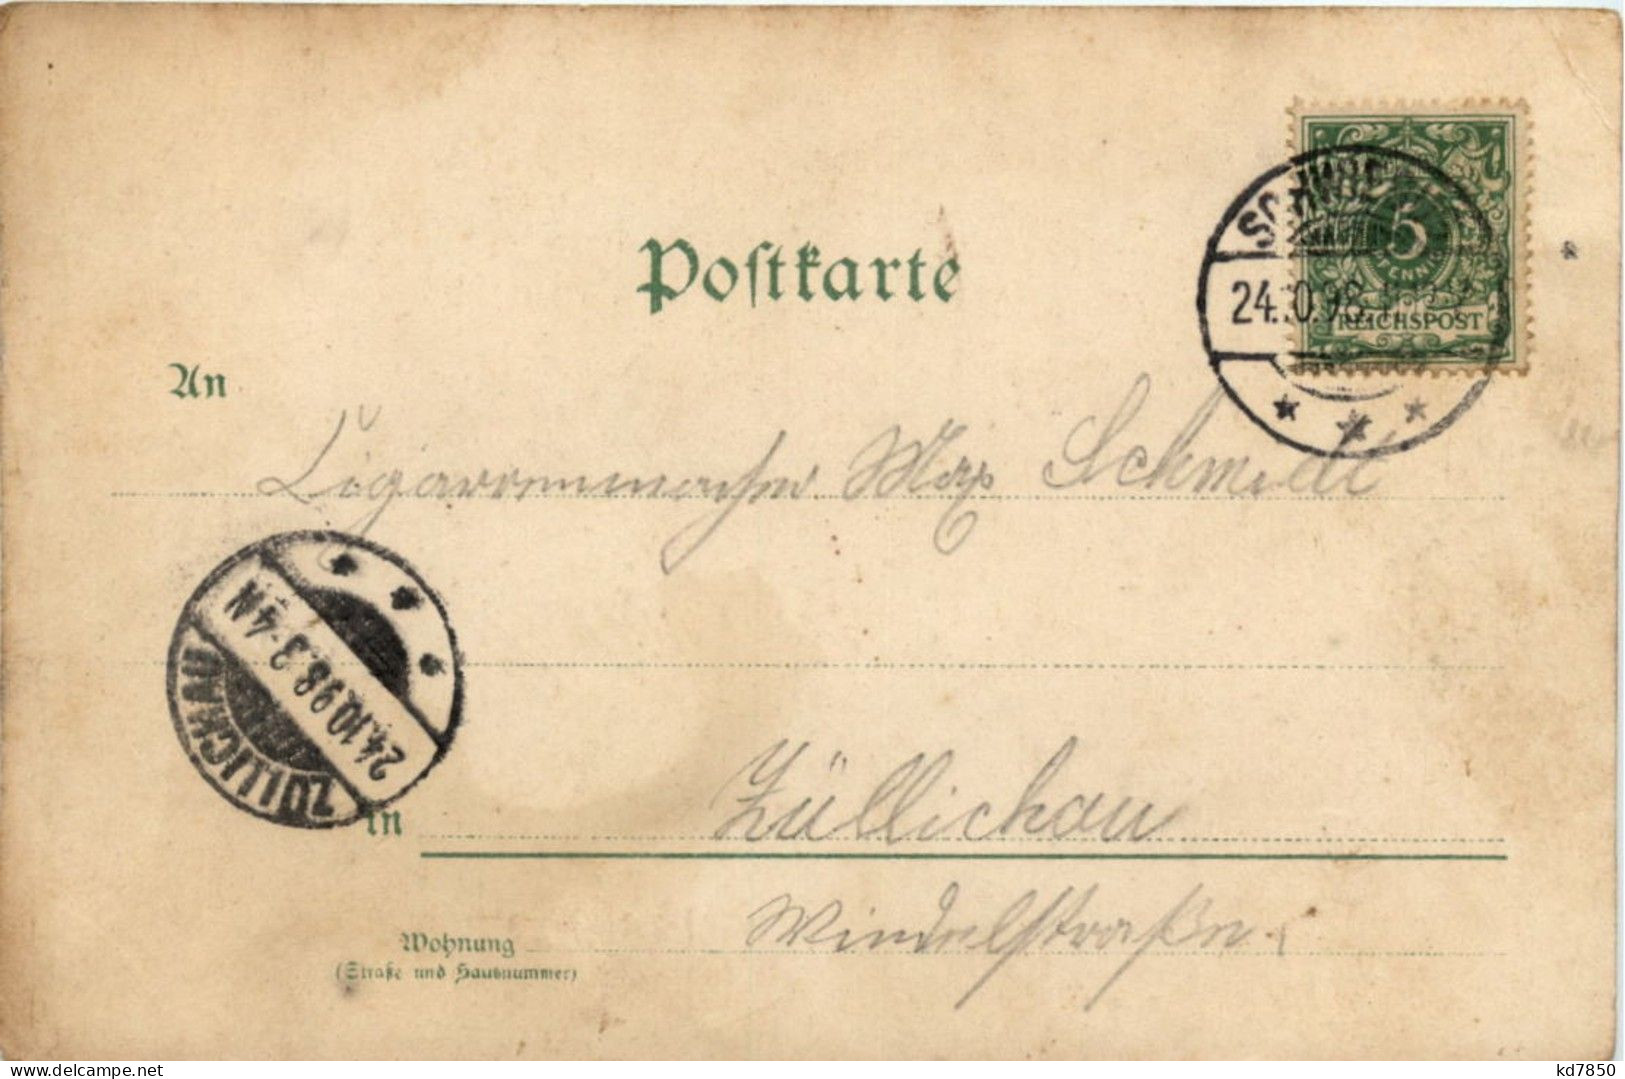 Postkarte
5
PFENNIG
REICHSPOST
SCHWIE
24.10.98.
An
Cigarrenmacher Max Schmidt
ZÜLLICHAU
24.10.98.3-4N
in
Züllichau
Windelstraße
Wohnung
(Straße und Hausnummer)
kd7850